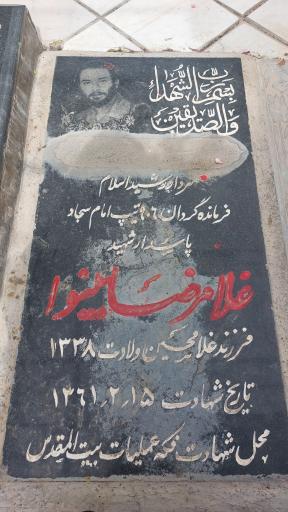 بسم رب الشهداء
والصدیقین
سردار رشید اسلام
فرمانده گردان ۱۰۶ تیپ امام سجاد
پاسدار شهید
غلامرضا بینوا
فرزند غلامحسین ولادت ۱۳۳۸
تاریخ شهادت ۱۵ر۲ر۱۳۶۱
محل شهادت فکه عملیات بیت المقدس